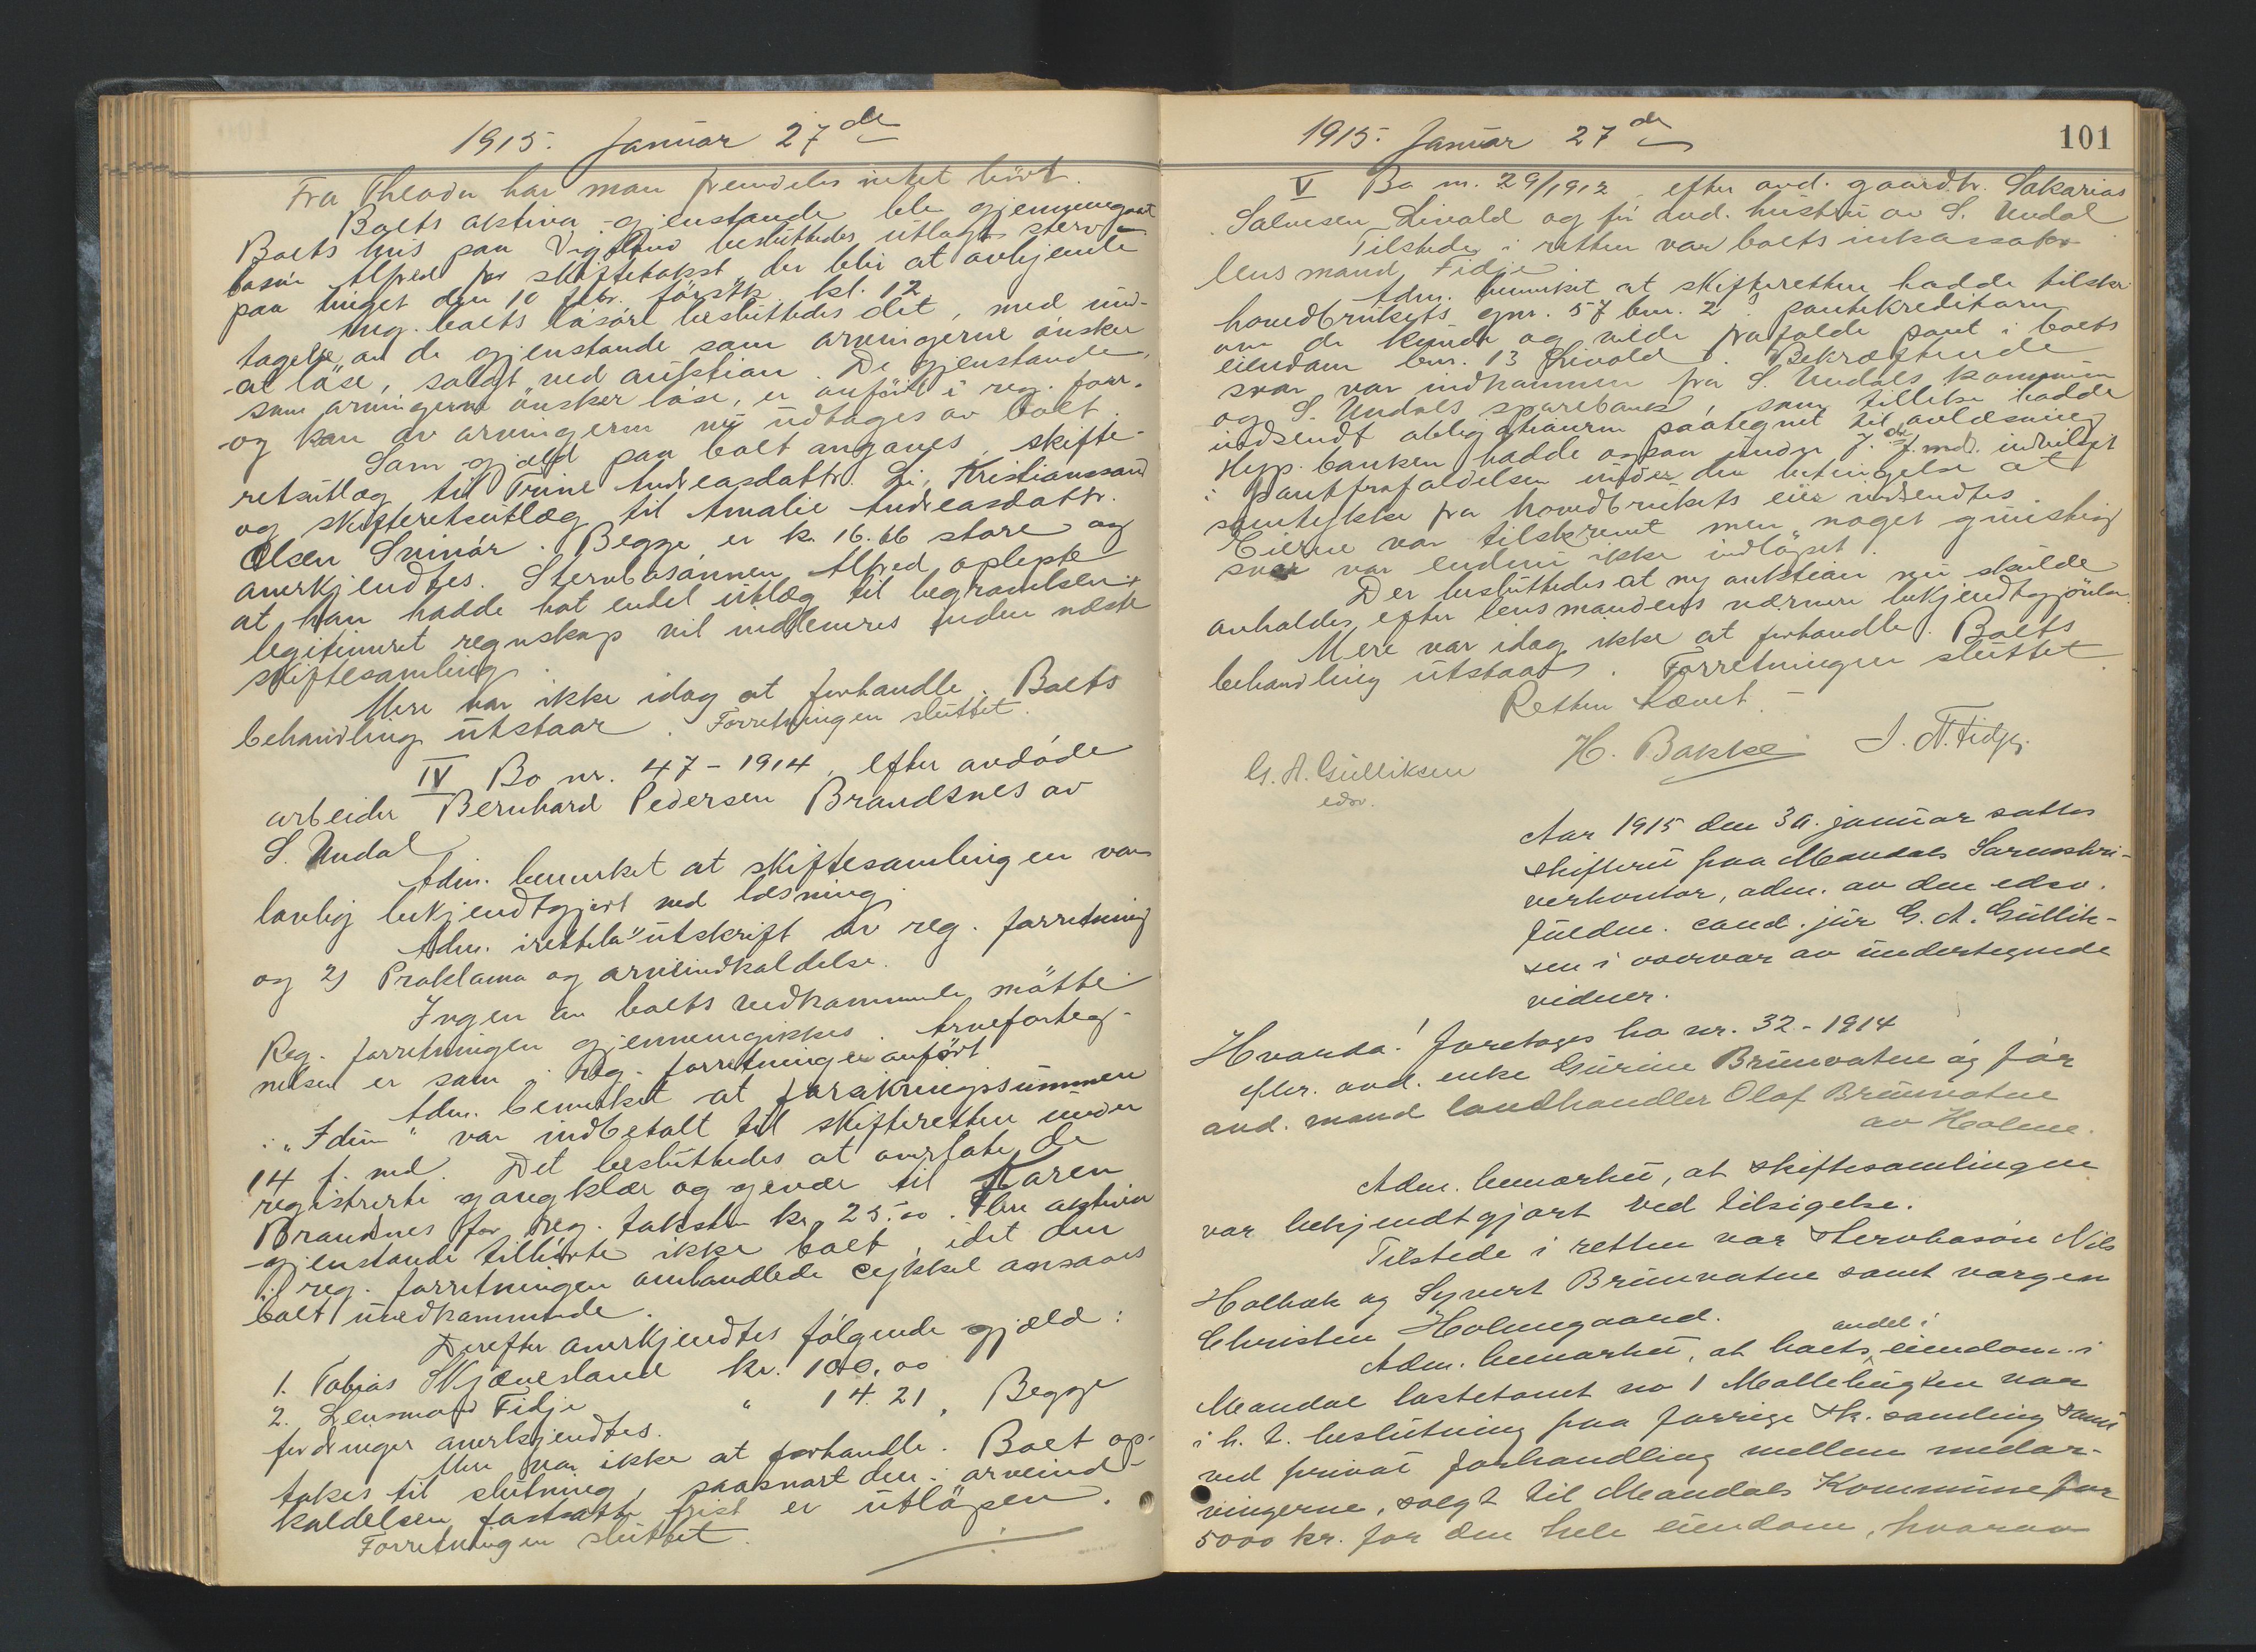 1915. Januar 27de
Fra Theodor har man fremdeles intet hört.
Boets aktiva gjenstande ble gjennemgaat
Boets hus paa besluttedes utlagt sterv-
bosön Alfred for skiftetakst, der blir at avhjemle
paa tinget den 10 febr. förstk. kl. 12
Ang. boets lösöre besluttedes det, med und-
tagelse av de gjenstande som arvingerne önsker
at löse, solgt ved auktion. De gjenstande,
som arvingerne önsker löse, er anfört i reg. forr.
og kan av arvingerne nu udtages av boet.
Som gjæld paa boet angaves, skifte-
retsutlæg til Trine Andreasdattr. Li, Kristianssand
og skifteretsutlæg til Amalie Andreasdattr.
Olsen Svinör. Begge er k. 16.66 store og
anerkjendtes. Stervbosönnen Alfred oplyste
at han hadde hat endel utlæg til begravelsen,
legitimeret regnskap vil indleveres inden næste
skiftesamling.
Mere var ikke idag at forhandle. Boets
behandling utstaar. Forretningen sluttet.
IV Bo nr. 47 - 1914, efter avdöde
arbeider Bernhard Pedersen Brandsnes av
S. Undal
Adm. bemerket at skiftesamlingen var
lovlig bekjendtgjort ved læsning.
Adm. irettela 1) utskrift av reg. forretning
og 2) Proklama og arveindkaldelse.
Ingen av boets vedkommende mötte
Reg. forretningen gjennemgikkes. Arveforteg-
nelsen er som i reg. forretningen anfört
Adm. bemerket at forsikringssummen
i "Idun" var indbetalt til skifteretten under
14 f. md. Det besluttedes at overlate de
registrerte gangklær og gevær til Karen
Brandsnes for reg. taksten kr. 25.00. Flere aktiva
gjenstande tilhörte ikke boet, idet den
i reg. forretningen omhandlede cykkel ansaaes
boet uvedkommende.
Derefter anerkjendtes fölgende gjæld:
1. Tobias Skjævesland kr. 100.00
2. Lensmand Fidje " 14.21, Begge
fordringer anerkjendtes.
Mere var ikke at forhandle. Boet op-
takes til slutning, saasnart den i arveind-
kaldelsen fastsatte frist er utlöpen.
Forretningen sluttet.
1915. Januar 27de
101
V Bo nr. 29/1912, efter avd. gaardbr. Sakarias
Salvesen Livold og för avd. hustru av S. Undal
Tilstede i retten var boets inkassator
lensmand Fidje
Adm. bemerket at skifteretten hadde tilskr.
hovedbrukets gnr. 57 bnr. 2 pantekreditorer
om de kunde og vilde frafalde pant i boets
eiendom bnr. 13 Livold. Bekræftende
svar var indkommen fra S. Undals kommune
og S. Undals sparebank, som tillike hadde
indsendt obligationerne paategnet til avlæsning
Hyp. banken hadde ogsaa under 7. f. md. indvilget
i pantfrafaldelsen under den betingelse at
samtykke fra hovedbrukets eier indsendtes.
Eierne var tilskrevet men noget gunstig
svar var endnu ikke indlöpet.
Der besluttedes at ny auktion nu skulde
avholdes efter lensmandens nærmere bekjendtgjörelse.
Mere var idag ikke at forhandle. Boets
behandling utstaar. Forretningen sluttet.
Retten hævet
G. A. Gulliksen H. Bakke
edsv.
Aar 1915 den 30. januar sattes
skifteret paa Mandals Sorenskri-
verkontor, adm. av den edsv.
fuldm. cand. jur G. A. Gullik-
sen i overvær av undertegnede
vidner.
Hvorda! Foretoges bo nr. 32 - 1914
efter. avd. enke Gurine Brunvatne og för
avd. mand landhandler Olaf Brunvatne
av Holme.
Adm. bemerket, at skiftesamlingen
var bekjendtgjort ved tilsigelse.
Tilstede i retten var stervbosön Nils
Holbæk og Syvert Brunvatne samt vergen
Christen Holmegaard.
Adm. bemerket, at boets andel i eiendom i
Mandal lastetomt no 1 Mallebugten var
i h. t. beslutning paa forrige sk. samling samt
ved privat forhandling mellem medar-
vingerne, solgt til Mandals Kommune for
5000 kr. for den hele eiendom, hvorav